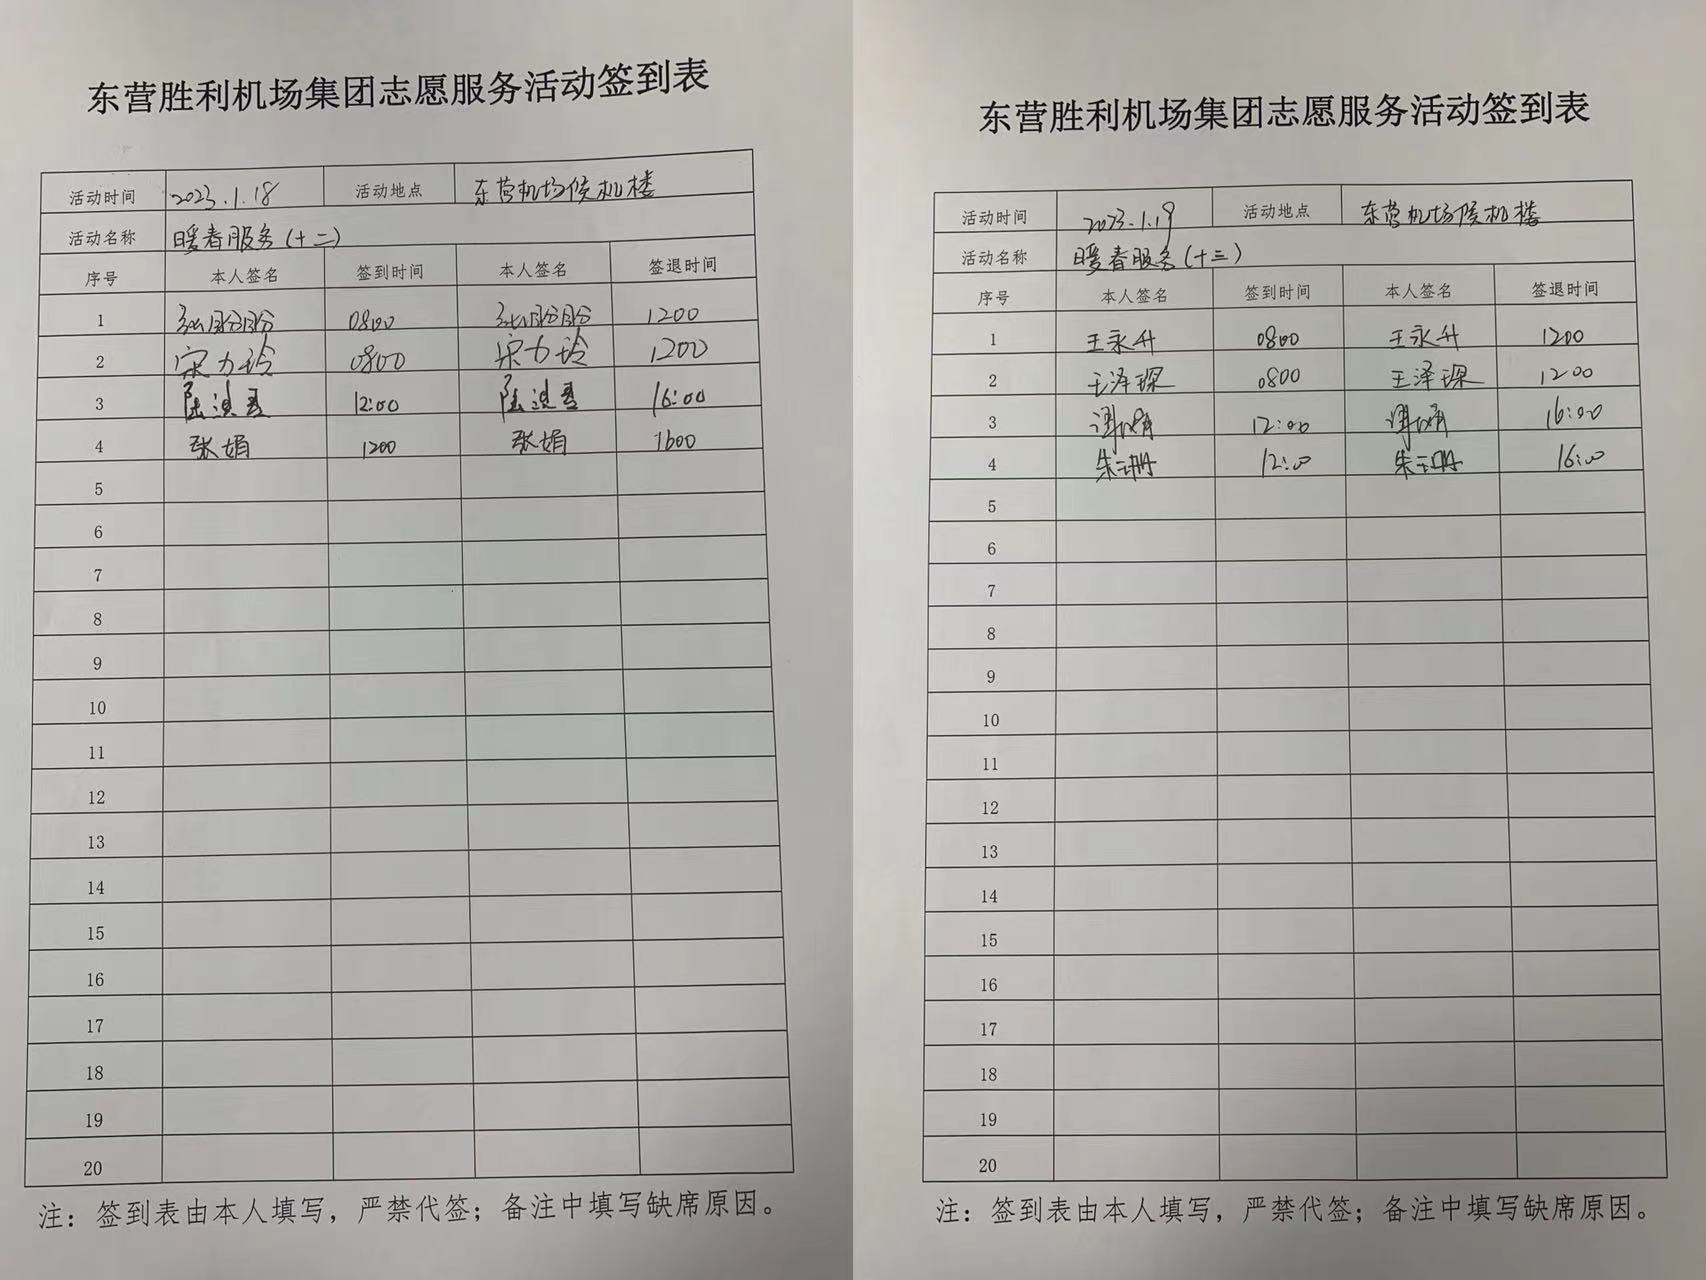 东营胜利机场集团志愿服务活动签到表
活动时间 2023.1.18 活动地点 东营机场候机楼
活动名称 暖春服务(十二)
序号 本人签名 签到时间 本人签名 签退时间
1 0800 1200
2 宋力玲 0800 宋力玲 1200
3 12:00 16:00
4 张娟 1200 张娟 1600
5
6
7
8
9
10
11
12
13
14
15
16
17
18
19
20
注：签到表由本人填写，严禁代签；备注中填写缺席原因。
东营胜利机场集团志愿服务活动签到表
活动时间 2023.1.19 活动地点 东营机场候机楼
活动名称 暖春服务(十三)
序号 本人签名 签到时间 本人签名 签退时间
1 王永升 0800 王永升 1200
2 王泽琛 0800 王泽琛 1200
3 12:00 16:00
4 12:00 16:00
5
6
7
8
9
10
11
12
13
14
15
16
17
18
19
20
注：签到表由本人填写，严禁代签；备注中填写缺席原因。